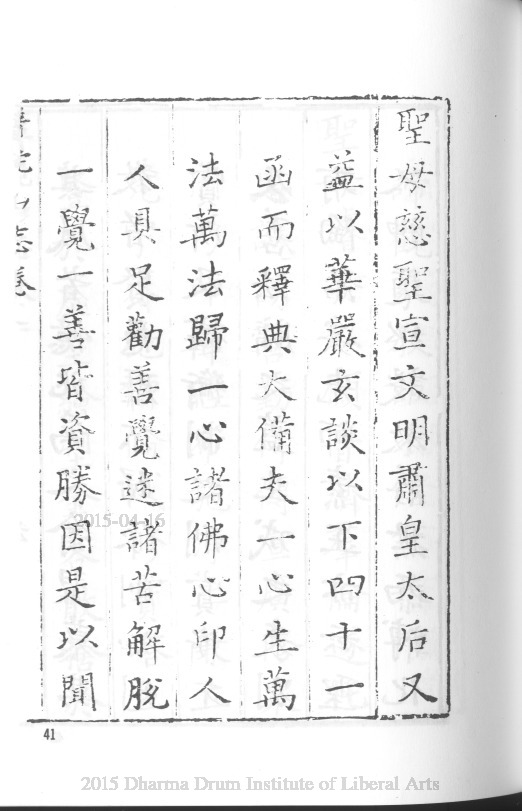 聖母慈聖宣文明肅皇太后又
益以華嚴玄談以下四十一
函而釋典大備夫一心生萬
法萬法歸一心諸佛心印人
人具足勸善覺迷諸苦解脫
一覺一善皆資勝因是以聞
山志卷
41
2015-04-16
2015 Dharma Drum Institute of Liberal Arts